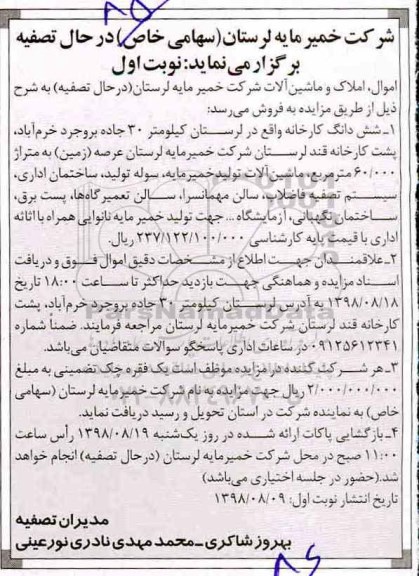 شرکت خمیر مایه لرستان (سهامی خاص) در حال تصفیه
برگزار می نماید: نوبت اول
اموال، املاک و ماشین آلات شرکت خمیر مایه لرستان (درحال تصفیه) به شرح
ذیل از طریق مزایده به فروش می‌رسد:
۱ـ شش دانگ کارخانه واقع در لرستان کیلومتر ۳۰ جاده بروجرد خرم‌آباد،
پشت کارخانه قند لرستان شرکت خمیرمایه لرستان عرصه (زمین) به متراژ
۶۰/۰۰۰ مترمربع، ماشین آلات تولیدخمیرمایه، سوله تولید، ساختمان اداری،
سیستم تصفیه فاضلاب، سالن مهمانسرا، سالن تعمیرگاه‌ها، پست برق،
ساختمان نگهبانی، آزمایشگاه ... جهت تولید خمیر مایه نانوایی همراه با اثاثه
اداری با قیمت پایه کارشناسی ۲۳۷/۱۲۲/۱۰۰/۰۰۰ ریال.
۲ـ علاقمندان جهت اطلاع از مشخصات دقیق اموال فوق و دریافت
اسناد مزایده و هماهنگی جهت بازدید حداکثر تا ساعت ۱۸:۰۰ تاریخ
۱۳۹۸/۰۸/۱۸ به آدرس لرستان کیلومتر ۳۰ جاده بروجرد خرم‌آباد، پشت
کارخانه قند لرستان شرکت خمیرمایه لرستان مراجعه فرمایند. ضمنا شماره
۰۹۱۲۵۶۱۲۳۴۱ در ساعات اداری پاسخگو سوالات متقاضیان می‌باشد.
۳ـ هر شرکت کننده در مزایده موظف است یک فقره چک تضمینی به مبلغ
۲/۰۰۰/۰۰۰/۰۰۰ ریال جهت مزایده به نام شرکت خمیر مایه لرستان (سهامی
خاص) به نماینده شرکت در استان تحویل و رسید دریافت نماید.
۴ـ بازگشایی پاکات ارائه شده در روز یک‌شنبه ۱۳۹۸/۰۸/۱۹ رأس ساعت
۱۱:۰۰ صبح در محل شرکت خمیرمایه لرستان (درحال تصفیه) انجام خواهد
شد.(حضور در جلسه اختیاری می‌باشد)
تاریخ انتشار نوبت اول: ۱۳۹۸/۰۸/۰۹
مدیران تصفیه
بهروز شاکری ـ محمد مهدی نادری نورعینی